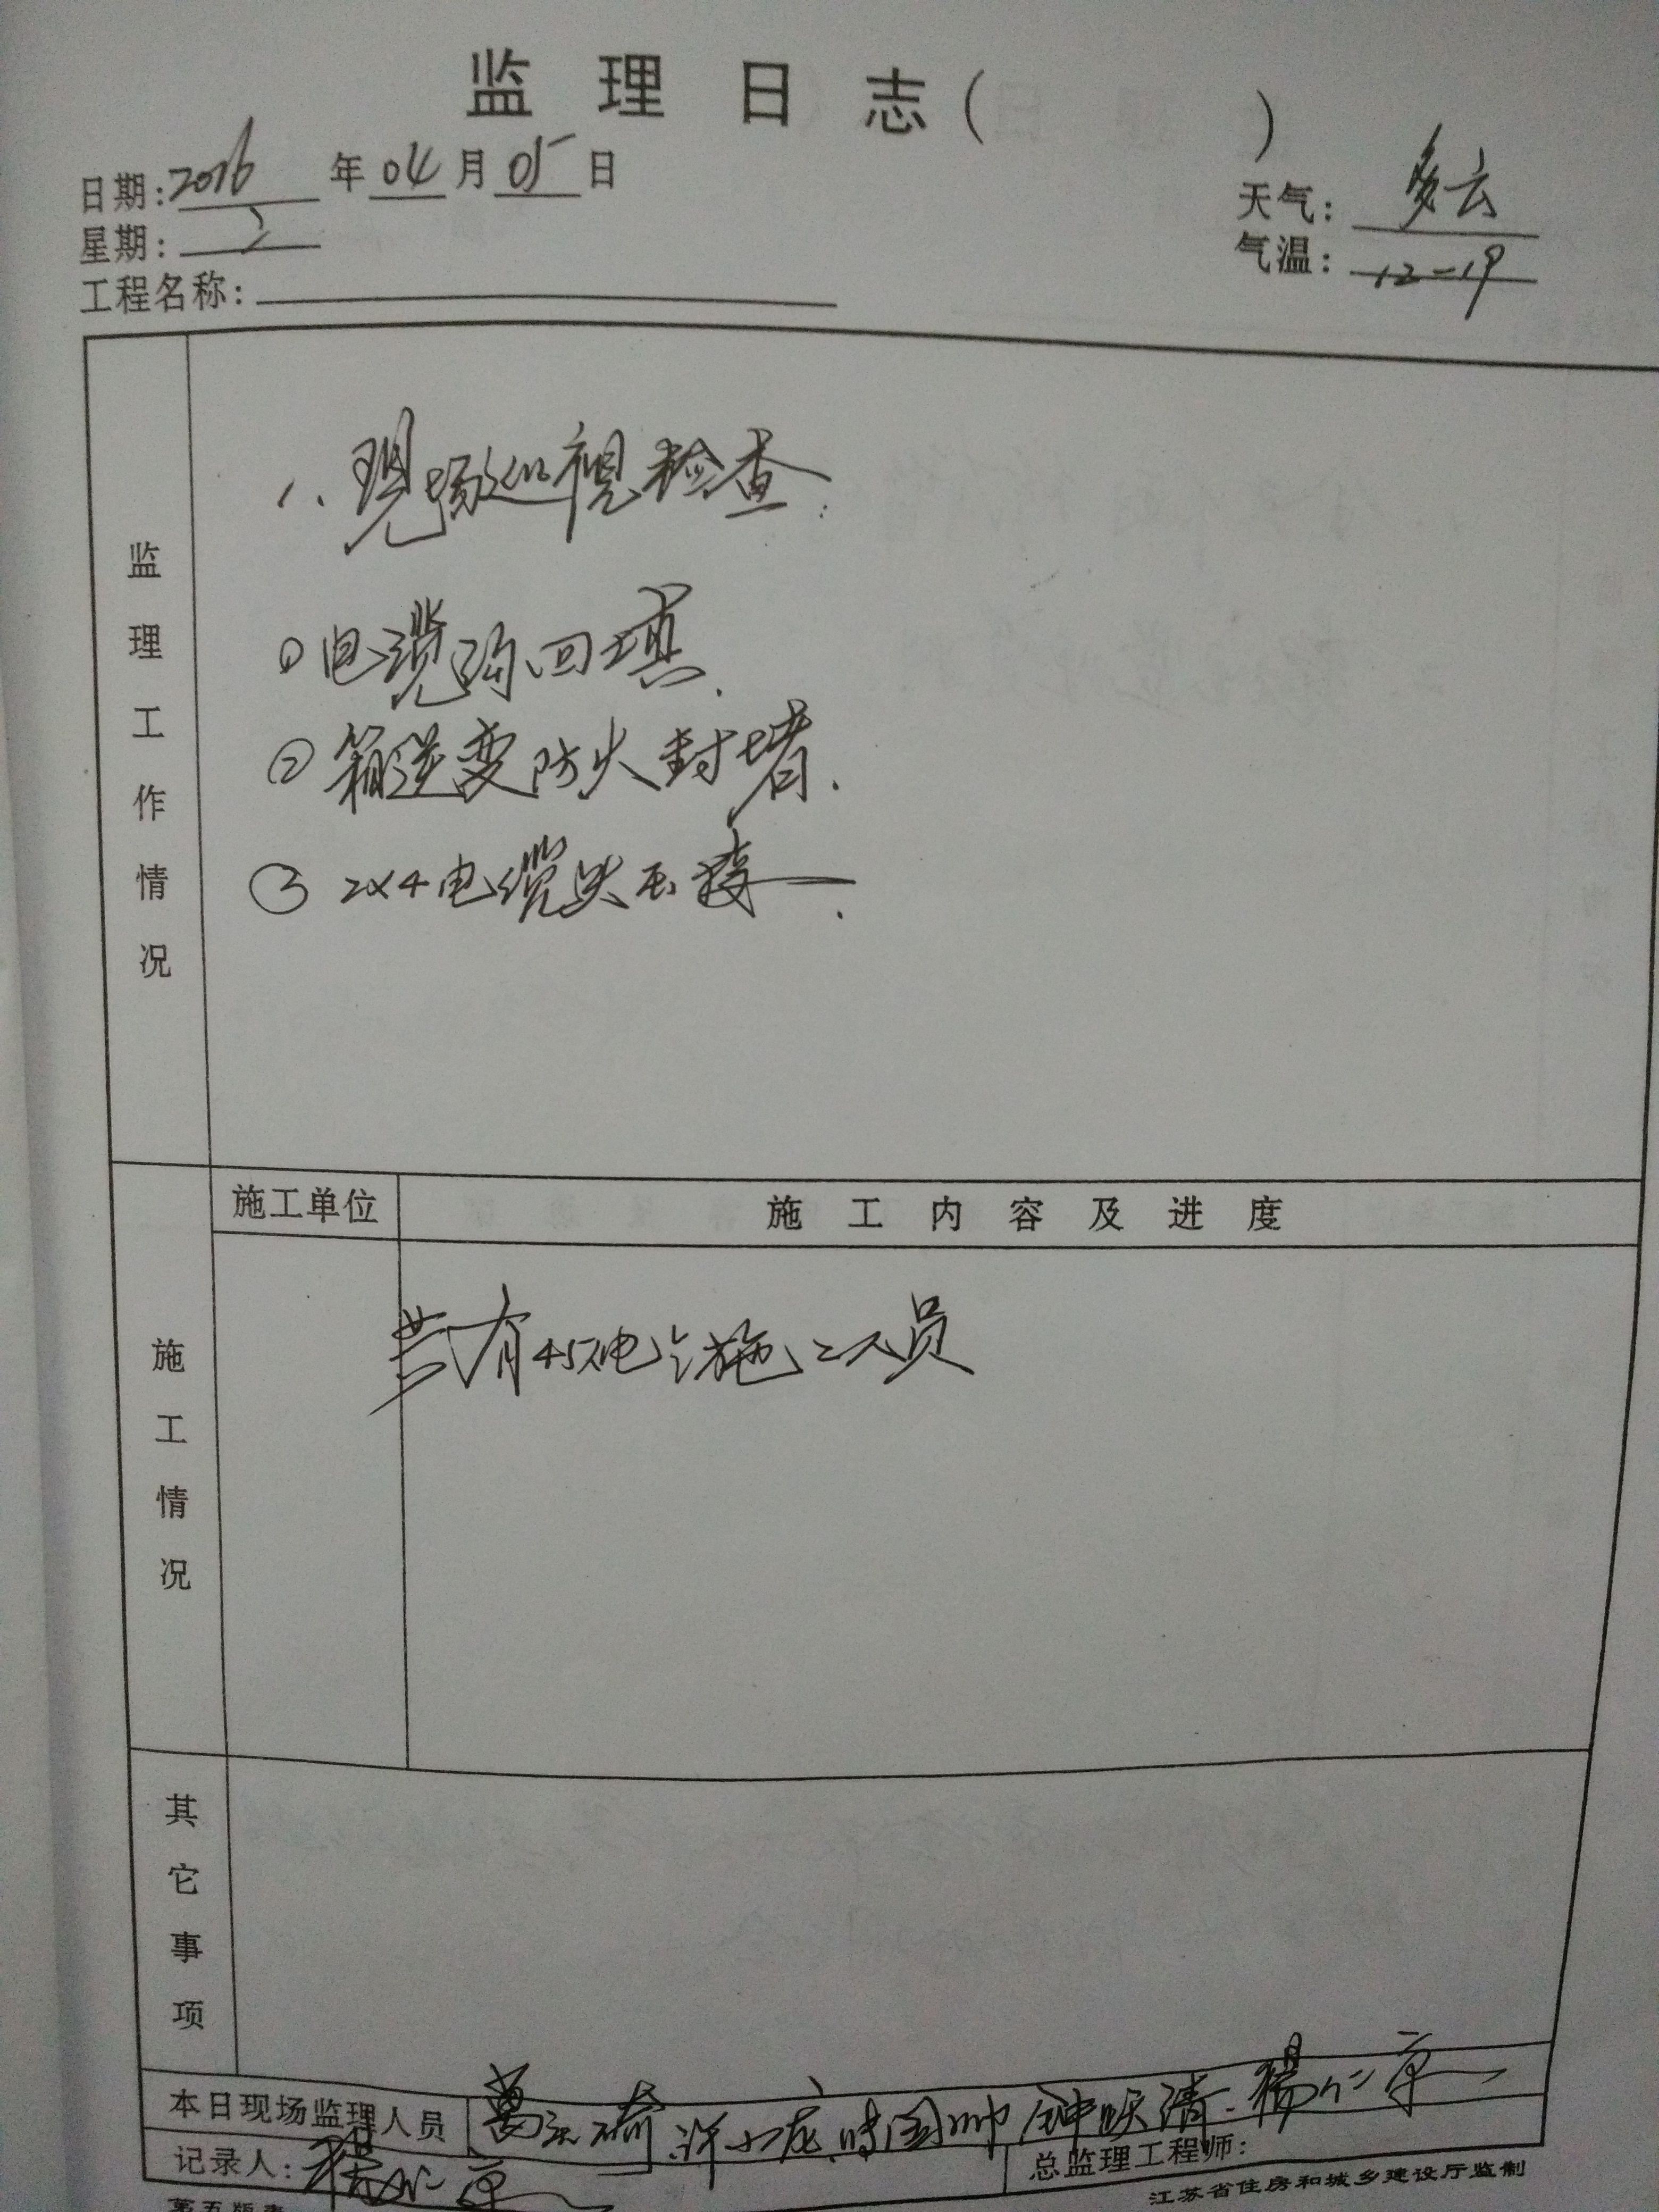 监理日志（ ）
日期：2016年04月05日
天气：多云
星期：2
气温：12-19
工程名称：
监理工作情况
1、现场巡视检查：
①电缆沟回填.
②箱逆变防火封堵.
③2×4电缆头压接.
施工单位
施工内容及进度
施工情况
共有45施工人员
其它事项
本日现场监理人员
许小龙 时国帅 钟跃清 杨仁京
记录人：杨仁京
总监理工程师：
江苏省住房和城乡建设厅监制
第五版表